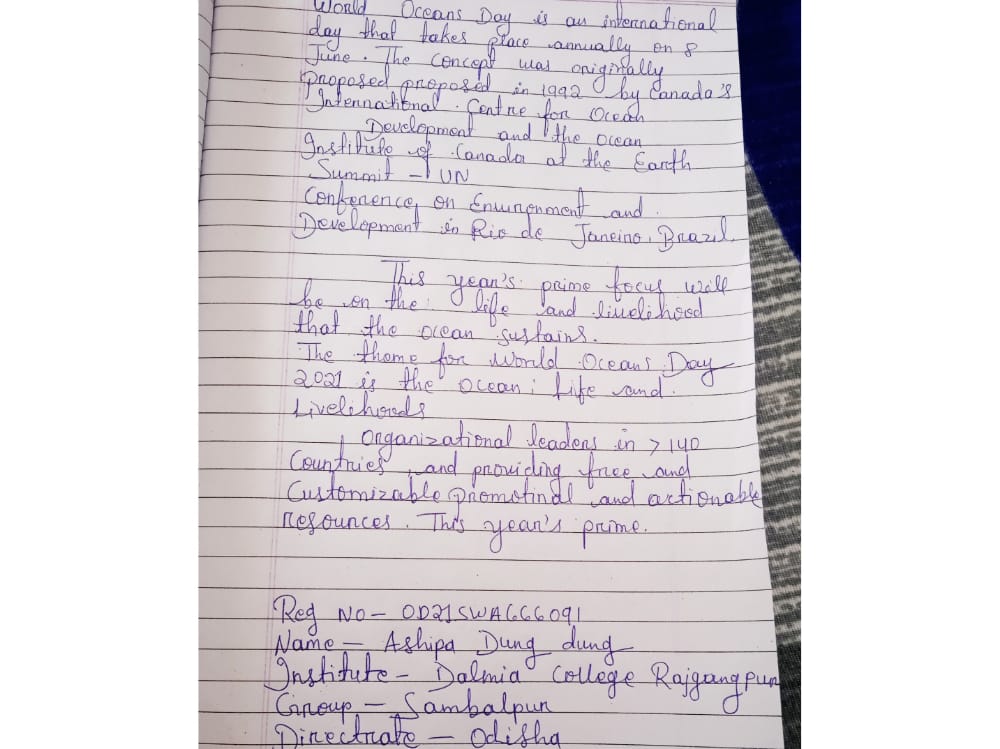 World Oceans Day is an international
day that takes place annually on 8
June. The concept was originally
Proposed proposed in 1992 by Canada's
International. Centre for Ocean
Development and the ocean
Institute of Canada at the Earth
Summit - UN
Conference, on Environment and
Development in Rio de Janeiro, Brazil.
This year's prime focus will
be on the life and livelihood
that the ocean sustains.
The theme for World Oceans Day
2021 is the ocean; Life and
Livelihoods
Organizational leaders in > 140
Countries, and providing free and
Customizable promotinal and actionable
resources. This year's prime.
Reg NO - OD21SWA666091
Name - Ashipa Dung dung
Institute - Dalmia College Rajgangpur
Group - Sambalpur
Directrate - Odisha